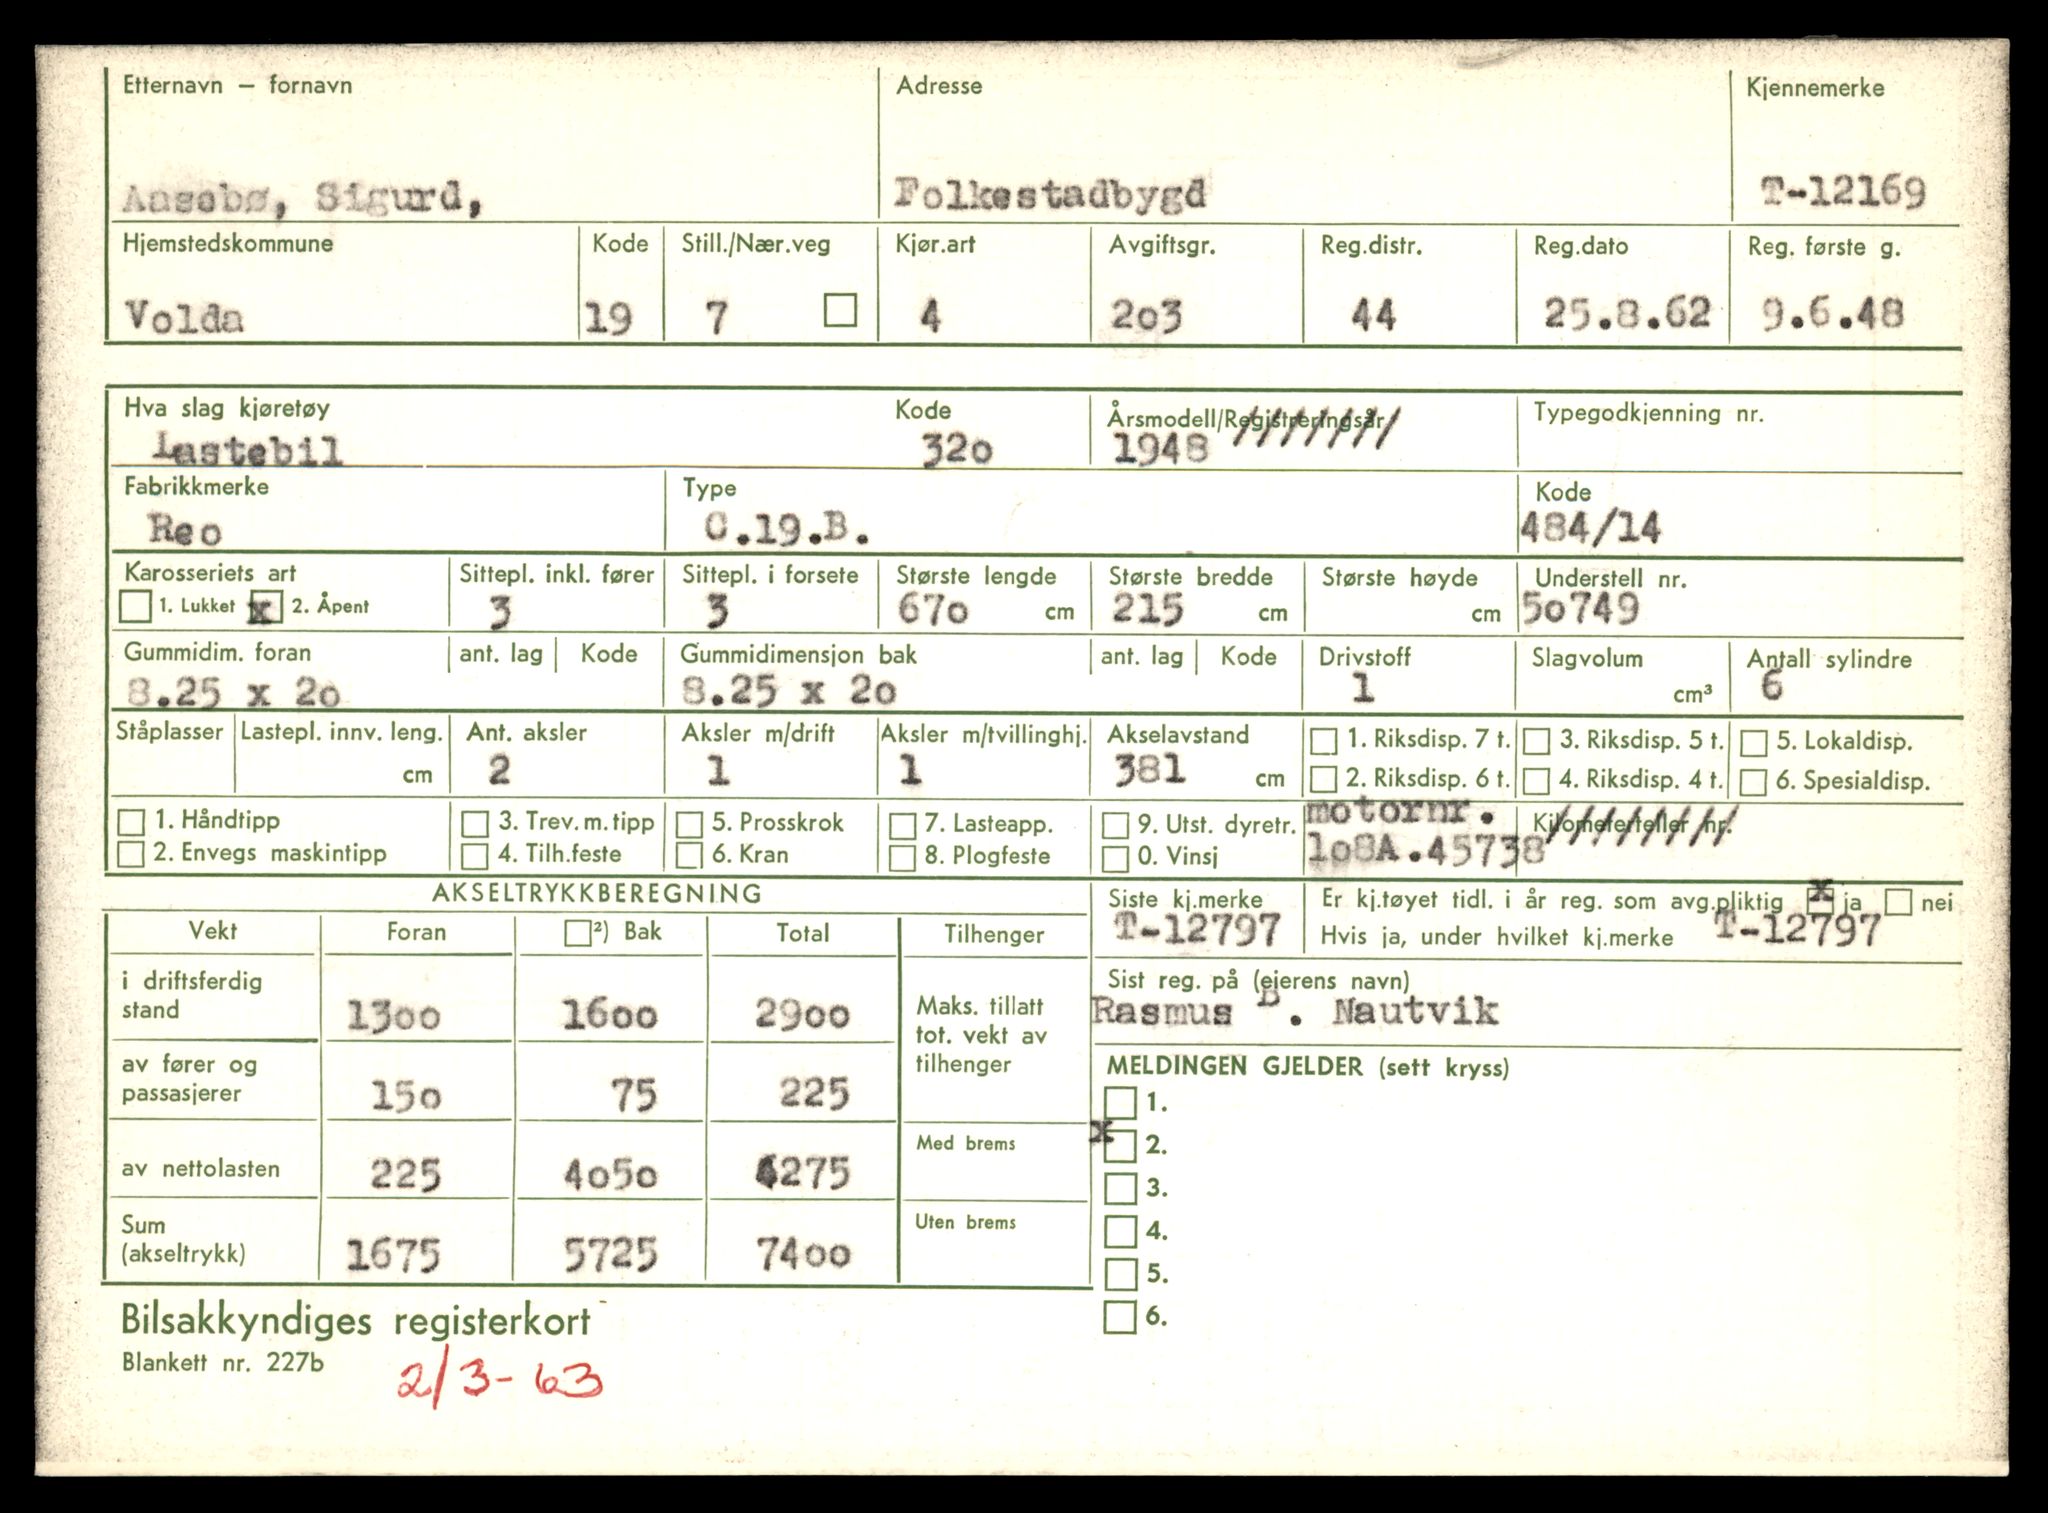 Etternavn – fornavn Adresse Kjennemerke
Aasebø, Sigurd, Folkestadbygd T-12169
Hjemstedskommune Kode Still./Nær.veg Kjør.art Avgiftsgr. Reg.distr. Reg.dato Reg. første g.
Volda 19 7 4 2o3 44 25.8.62 9.6.48
Hva slag kjøretøy Kode Årsmodell/Registreringsår Typegodkjenning nr.
Lastebil 32o 1948 ////////
Fabrikkmerke Type Kode
Reo C.19.B. 484/14
Karosseriets art Sittepl. inkl. fører Sittepl. i forsete Største lengde Største bredde Største høyde Understell nr.
1. Lukket x 2. Åpent 3 3 67o cm 215 cm cm 5o749
Gummidim. foran ant. lag Kode Gummidimensjon bak ant. lag Kode Drivstoff Slagvolum Antall sylindre
8.25 x 2o 8.25 x 2o 1 cm³ 6
Ståplasser Lastepl. innv. leng. Ant. aksler Aksler m/drift Aksler m/tvillinghj. Akselavstand 1. Riksdisp. 7 t. 3. Riksdisp. 5 t. 5. Lokaldisp.
cm 2 1 1 381 cm 2. Riksdisp. 6 t. 4. Riksdisp. 4 t. 6. Spesialdisp.
1. Håndtipp 3. Trev. m. tipp 5. Prosskrok 7. Lasteapp. 9. Utst. dyretr. motornr. Kilometerteller nr. ////////
2. Envegs maskintipp 4. Tilh.feste 6. Kran 8. Plogfeste 0. Vinsj 1o8A.45738
AKSELTRYKKBEREGNING
Vekt Foran ²) Bak Total Tilhenger
i driftsferdig
stand 13oo 16oo 29oo
av fører og
passasjerer 15o 75 225
av nettolasten 225 4o5o 4275
Sum
(akseltrykk) 1675 5725 74oo
Maks. tillatt
tot. vekt av
tilhenger
Med brems
Uten brems
Siste kj.merke Er kj.tøyet tidl. i år reg. som avg.pliktig x ja nei
T-12797 Hvis ja, under hvilket kj.merke T-12797
Sist reg. på (eierens navn)
Rasmus B. Nautvik
MELDINGEN GJELDER (sett kryss)
1.
x 2.
3.
4.
5.
6.
Bilsakkyndiges registerkort
Blankett nr. 227b
2/3-63